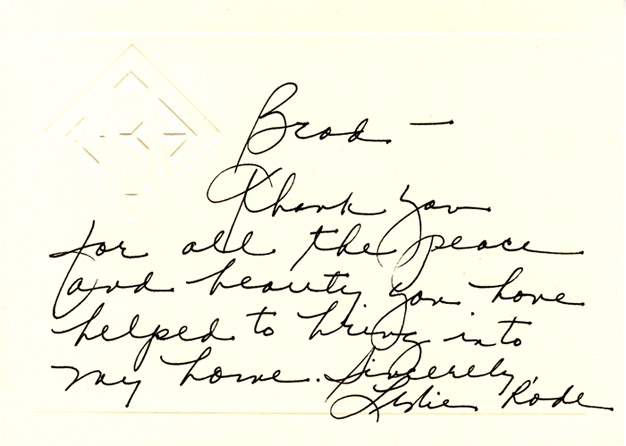 Brad —
Thank you
for all the peace
and beauty you have
helped to bring into
my home. Sincerely,
Leslie Rode